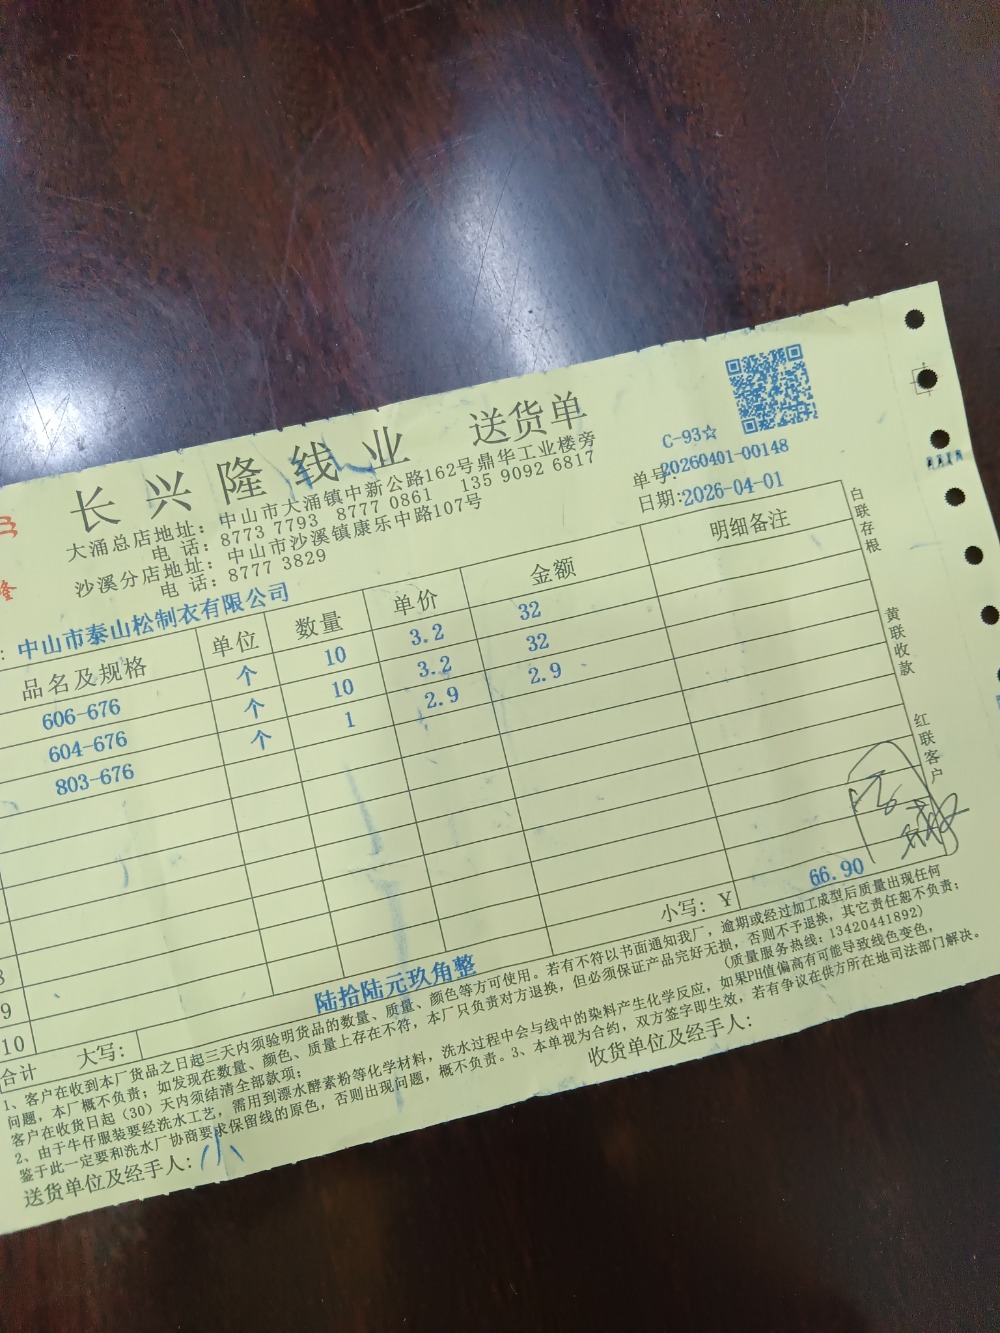 长兴隆线业 送货单
C-93☆
大涌总店地址：中山市大涌镇中新公路162号鼎华工业楼旁
电 话：8773 7793 8777 0861 135 9092 6817
沙溪分店地址：中山市沙溪镇康乐中路107号
电 话：8777 3829
单号:20260401-00148
日期:2026-04-01
：中山市泰山松制衣有限公司
品名及规格 单位 数量 单价 金额 明细备注
606-676 个 10 3.2 32
604-676 个 10 3.2 32
803-676 个 1 2.9 2.9
9
10
合计 大写： 陆拾陆元玖角整 小写：￥ 66.90
1、客户在收到本厂货品之日起三天内须验明货品的数量、质量、颜色等方可使用。若有不符以书面通知我厂，逾期或经过加工成型后质量出现任何
问题，本厂概不负责；如发现在数量、颜色、质量上存在不符，本厂只负责对方退换，但必须保证产品完好无损，否则不予退换，其它责任恕不负责；
客户在收货日起（30）天内须结清全部款项； （质量服务热线：13420441892）
2、由于牛仔服装要经洗水工艺，需用到漂水酵素粉等化学材料，洗水过程中会与线中的染料产生化学反应，如果PH值偏高有可能导致线色变色，
鉴于此一定要和洗水厂协商要求保留线的原色，否则出现问题，概不负责。3、本单视为合约，双方签字即生效，若有争议在供方所在地司法部门解决。
送货单位及经手人： 小 收货单位及经手人：
白联存根
黄联收款
红联客户
隆